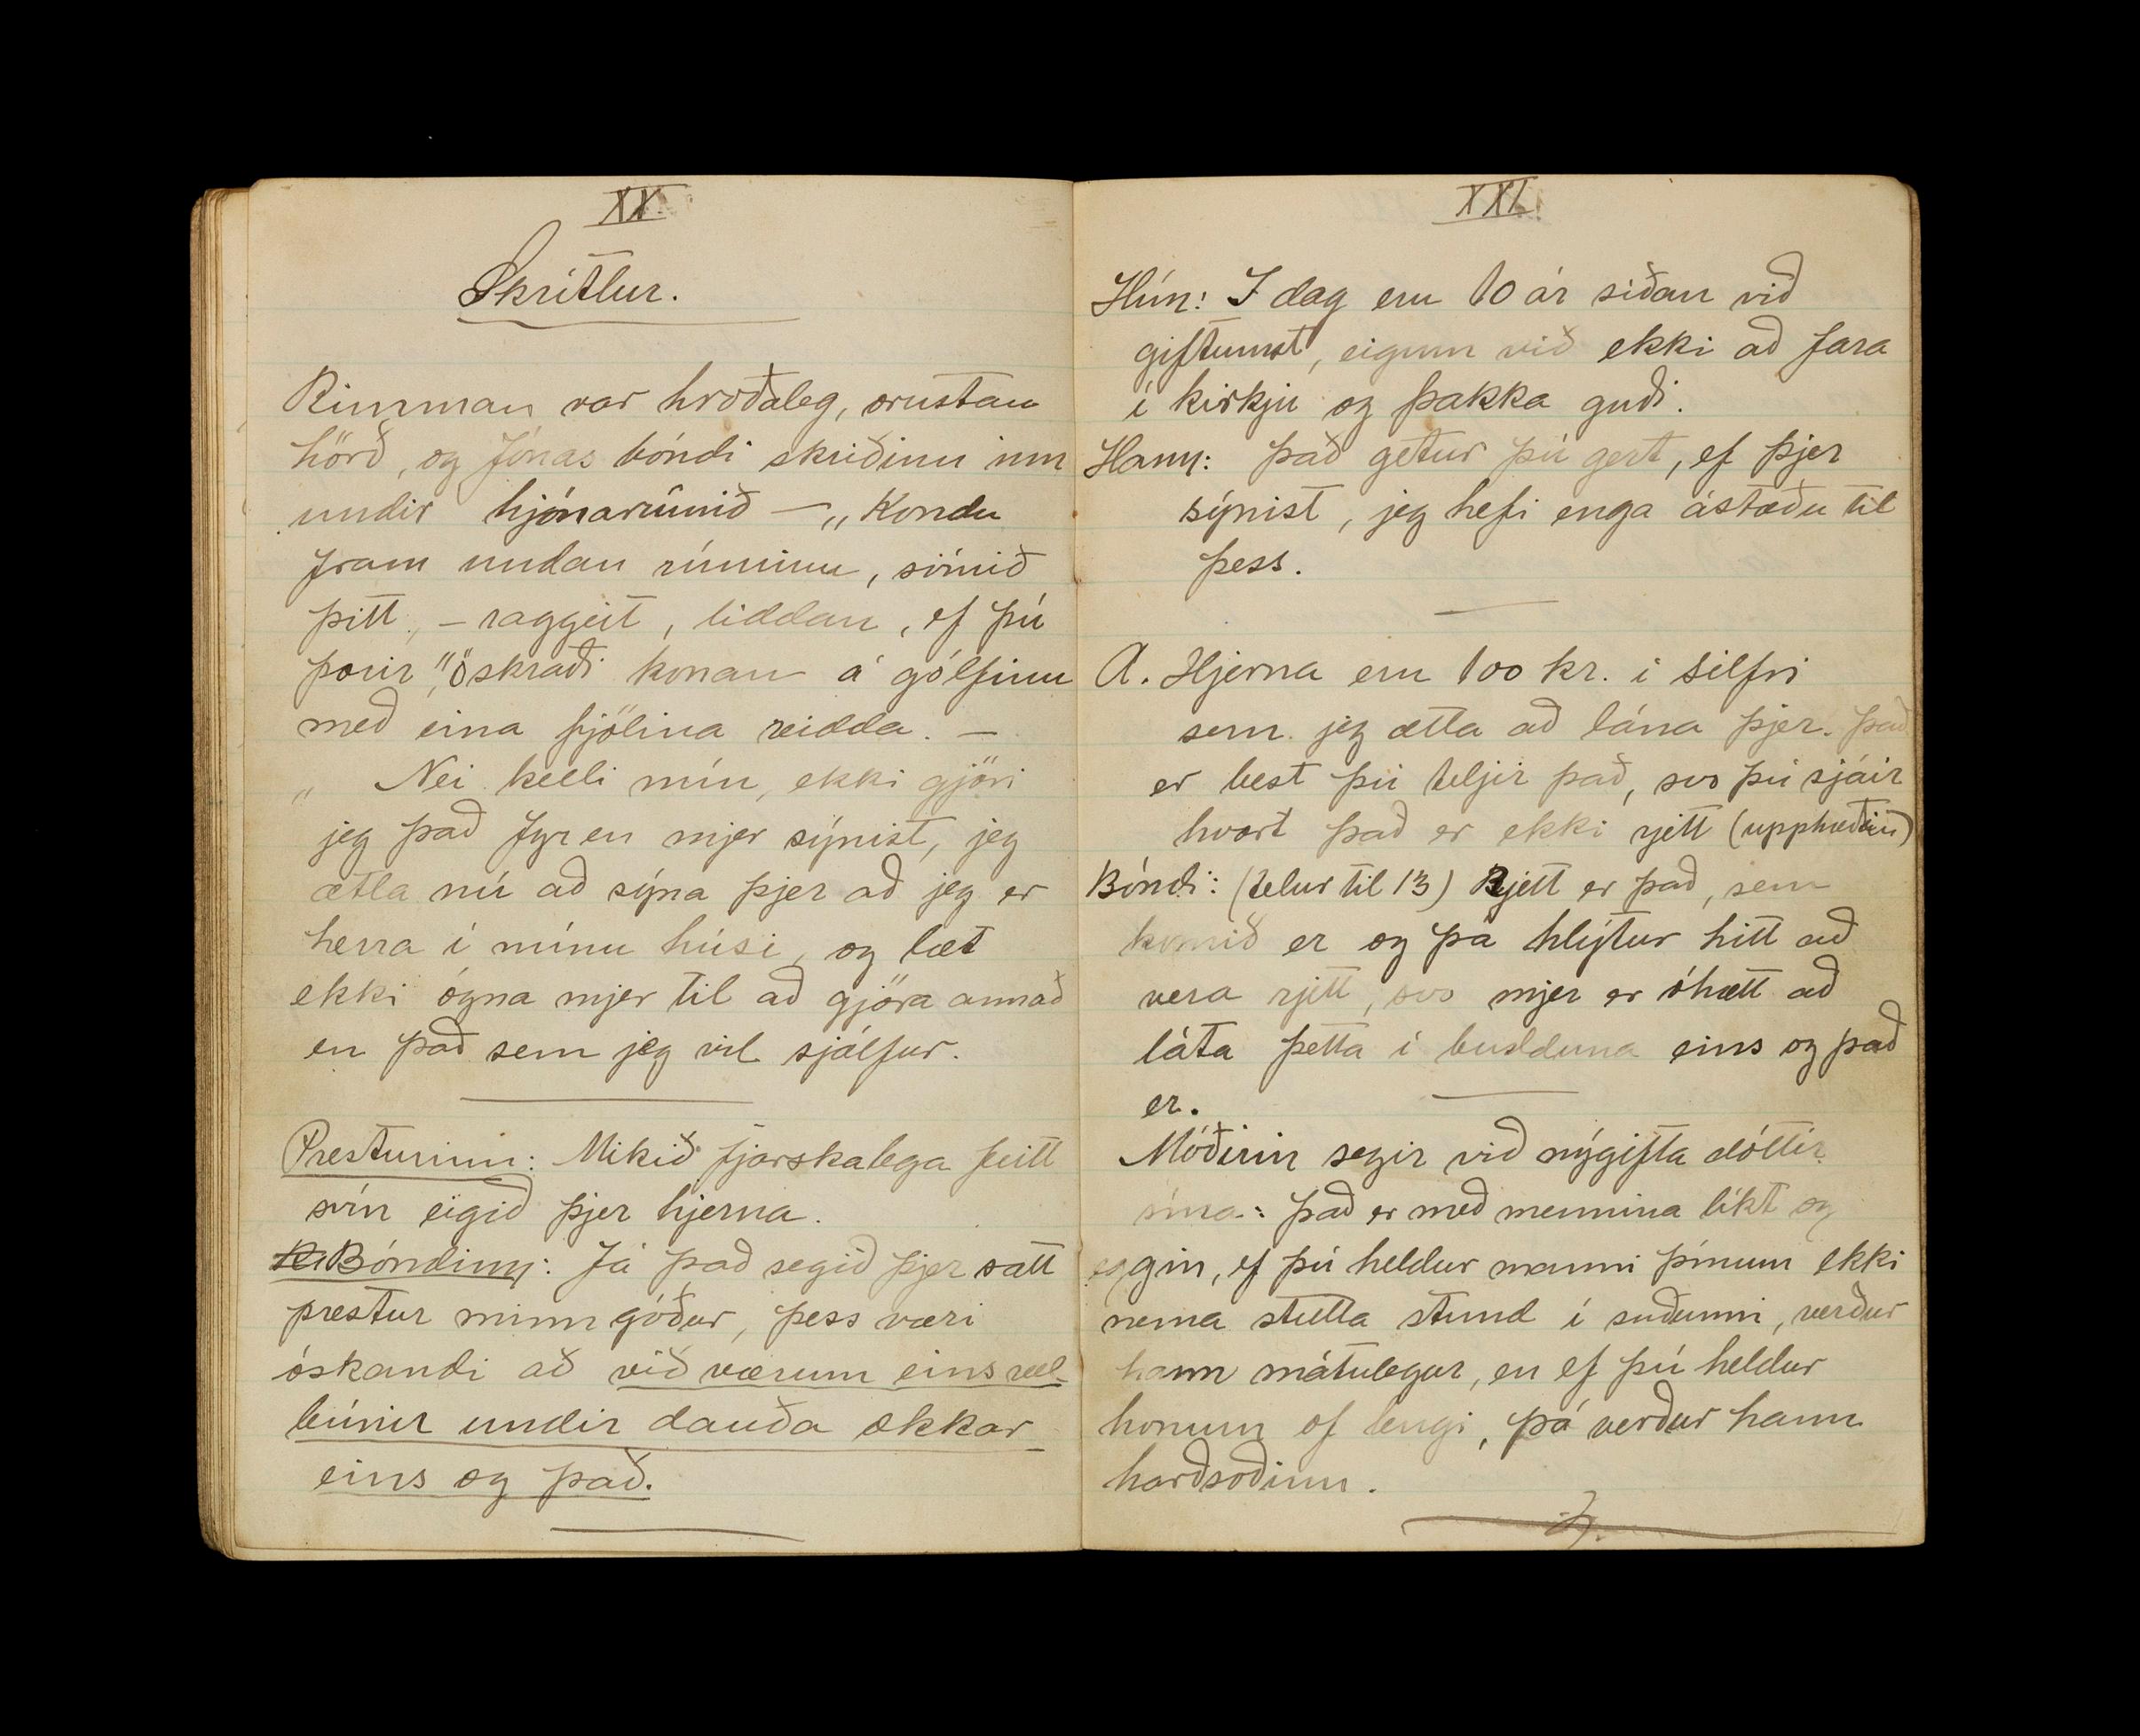 XX.
Skrítlur.
Rimman var hroðaleg, orustan
hörð, og Jónas bóndi skriðinn inn
undir hjónarúmið — „Kondu
fram undan rúminu, svínið
þitt, — raggeit, liddan, ef þú
þorir," öskraði konan á gólfinu
með eina fjölina reidda. —
„ Nei kelli mín, ekki gjöri
jeg það fyr en mjer sýnist, jeg
ætla nú að sýna þjer að jeg er
herra í mínu húsi, og læt
ekki ógna mjer til að gjöra annað
en það sem jeg vil sjálfur.
Presturinn: Mikið fjarskalega feitt
svín eigið þjer hjerna.
Bóndinn: Já það segið þjer satt
prestur minn góður, þess væri
óskandi að við værum eins vel-
búnir undir dauða okkar
eins og það.
XXI.
Hún: I dag eru 10 ár síðan við
giftumst, eigum við ekki að fara
í kirkju og þakka guði.
Hann: það getur þú gert, ef þjer
sýnist, jeg hefi enga ástæðu til
þess.
A. Hjerna eru 100 kr. í silfri
sem jeg ætla að lána þjer. það
er best þú teljir það, svo þú sjáir
hvort það er ekki rjett (upphæðin)
Bóndi: (telur til 13) Rjett er það, sem
komið er og þá hlýtur hitt að
vera rjett, svo mjer er óhætt að
láta þetta í budduna eins og það
er.
Móðirin segir við nýgifta dóttir
sína: það er með mennina líkt og
eggin, ef þú heldur manni þínum ekki
nema stutta stund í suðunni, verður
hann mátulegur, en ef þú heldur
honum of lengi, þá verður hann
harðsoðinn.